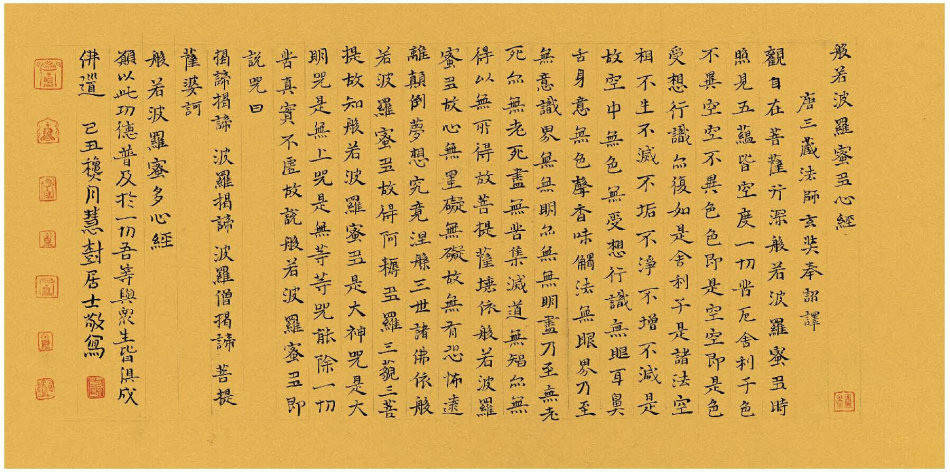 般若波羅蜜多心經
唐三藏法師玄奘奉詔譯
觀自在菩薩行深般若波羅蜜多時
照見五蘊皆空度一切苦厄舍利子色
不異空空不異色色即是空空即是色
受想行識亦復如是舍利子是諸法空
相不生不滅不垢不淨不增不減是
故空中無色無受想行識無眼耳鼻
舌身意無色聲香味觸法無眼界乃至
無意識界無無明亦無無明盡乃至無老
死亦無老死盡無苦集滅道無智亦無
得以無所得故菩提薩埵依般若波羅
蜜多故心無罣礙無礙故無有恐怖遠
離顛倒夢想究竟涅槃三世諸佛依般
若波羅蜜多故得阿耨多羅三藐三菩
提故知般若波羅蜜多是大神咒是大
明咒是無上咒是無等等咒能除一切
苦真實不虛故說般若波羅蜜多即
說咒曰
揭諦揭諦 波羅揭諦 波羅僧揭諦 菩提
薩婆訶
般若波羅蜜多心經
願以此功德普及於一切吾等與眾生皆俱成
佛道 己丑月慧居士敬寫